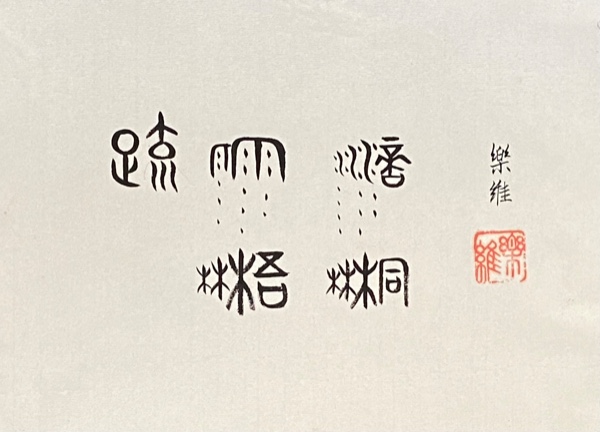 疏雨滴
梧桐
樂維
樂維